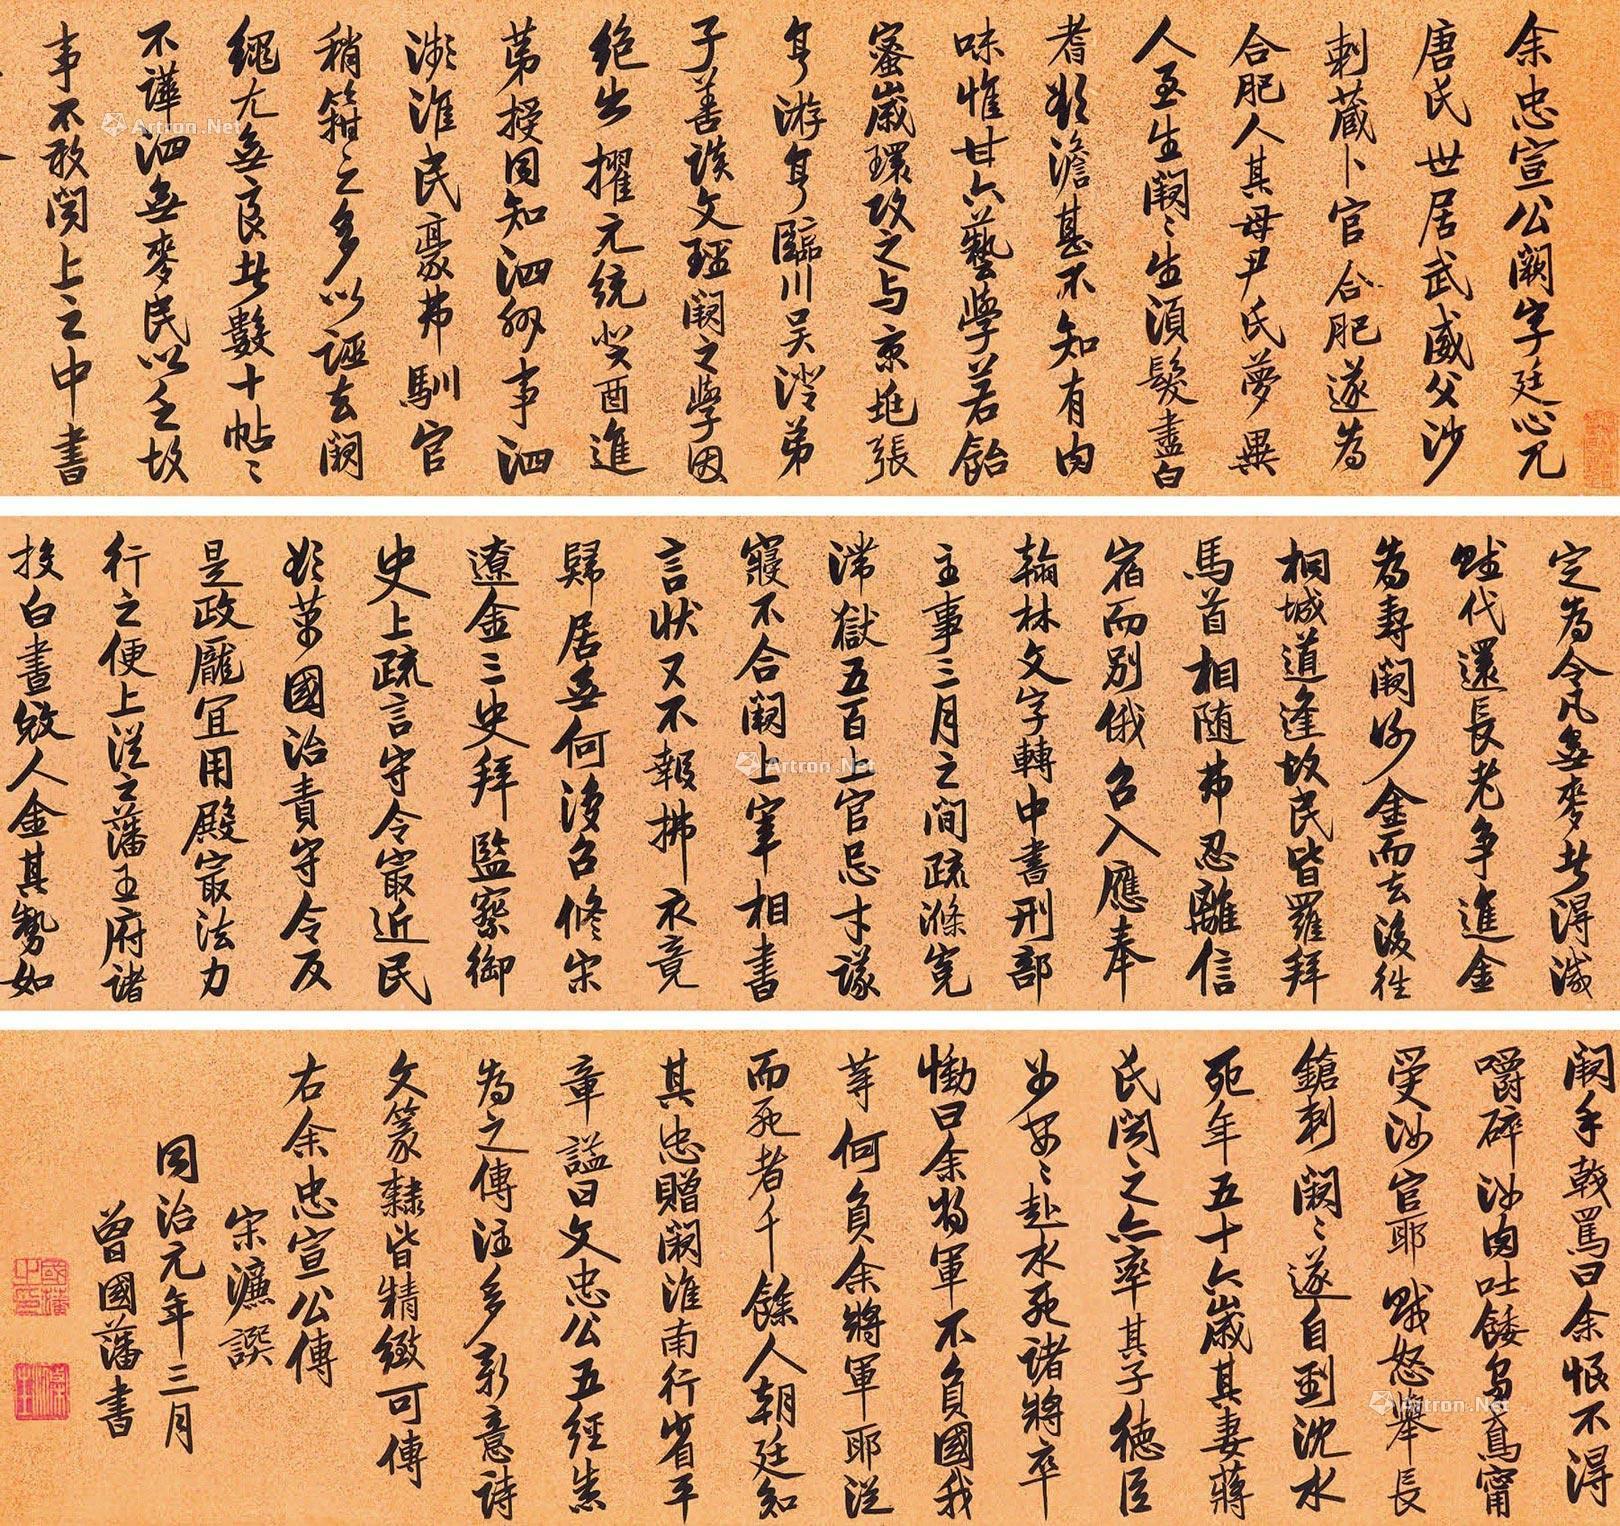 余忠宣公闕字廷心元
唐氏世居武威父沙
剌藏卜官合肥遂為
合肥人其母尹氏夢異
人至生闕〻生須髮盡白
耆欲澹甚不知有肉
味惟甘六藝學若飴
蜜歲環攻之与京兆張
亨游亨臨川吳澄弟
子善談文理闕之學因
絶出擢元統癸酉進
苐授同知泗州事泗
瀕淮民豪弗馴官
稍箝之多以誣去闕
繩尤無良者數十帖〻
不譁泗無麥民以乏故
事不敢聞上之中書
定為令凡無麥者得減
賦代還長老爭進金
為壽闕
桐城道逢故民皆羅拜
馬首相随弗忍離信
宿而别俄召入應奉
翰林文字轉中書刑部
主事三月之間疏滌冤
滯獄五百上官忌才議
寢不合闕上宰相書
言狀又不報拂衣竟
歸居無何復召修宋
遼金三史拜監察御
史上疏言守令最近民
欲萬國治責守令反
是政龐宜用殿最法力
行之便上從之藩王府諸
校白晝斂人金其勢如
闕手戟罵曰余恨不得
嚼碎汝肉吐餧烏鳶甯
受汝官耶賊怒舉長
鎗刺闕〻遂自刭沈水
死年五十六歳其妻蔣
氏聞之亦率其子德臣
女安〻赴水死諸將卒
慟曰余將軍不負國我
等何負余將軍耶從
而死者千餘人朝廷知
其忠贈闕淮南行省平
章諡曰文忠公五經悉
為之傳注多新意詩
文篆隸皆精緻可傳
右余忠宣公傳
宋濂譔
同治元年三月
曾國藩書
Artron.Net
Artron.Net
Artron.Net